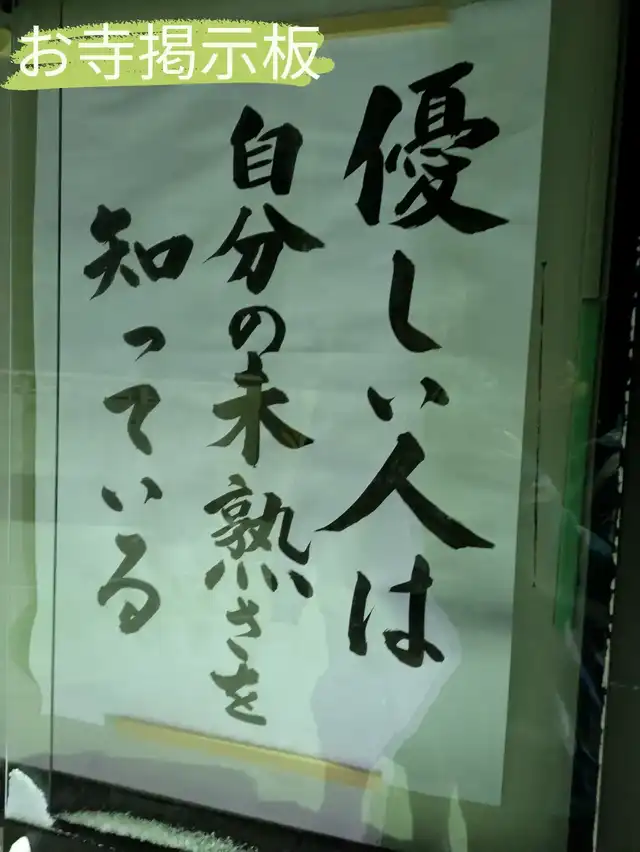 お寺掲示板
優しい人は
自分の未熟さを
知っている